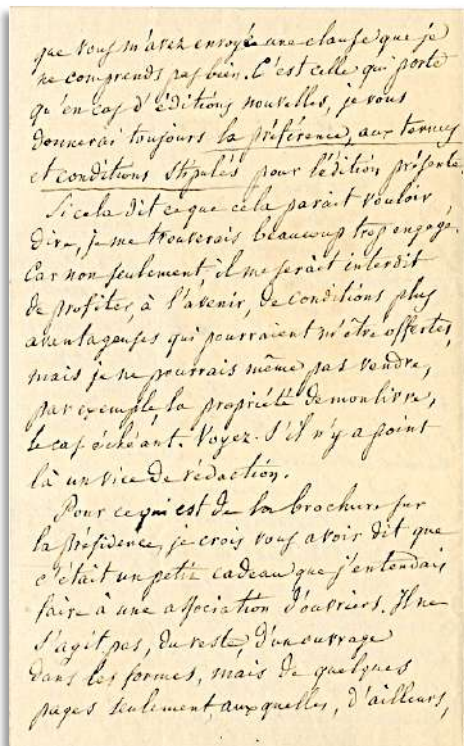 que vous m'avez envoyé une clause que je
ne comprends pas bien. C'est celle qui porte
qu'en cas d'éditions nouvelles, je vous
donnerai toujours la préférence, aux termes
et conditions stipulés pour l'édition présente.
Si cela dit ce que cela parait vouloir
dire, je me trouverais beaucoup trop engagé.
Car non seulement, il me serait interdit
de profiter, à l'avenir, de conditions plus
avantageuses qui pourraient m'être offertes,
mais je ne pourrais même pas vendre,
par exemple, la propriété de mon livre,
le cas échéant. Voyez s'il n'y a point
là un vice de rédaction.
Pour ce qui est de la brochure sur
la présidence, je crois vous avoir dit que
c'était un petit cadeau que j'entendais
faire à une association d'ouvriers. Il ne
s'agit pas, du reste, d'un ouvrage
dans les formes, mais de quelques
pages seulement, auxquelles, d'ailleurs,